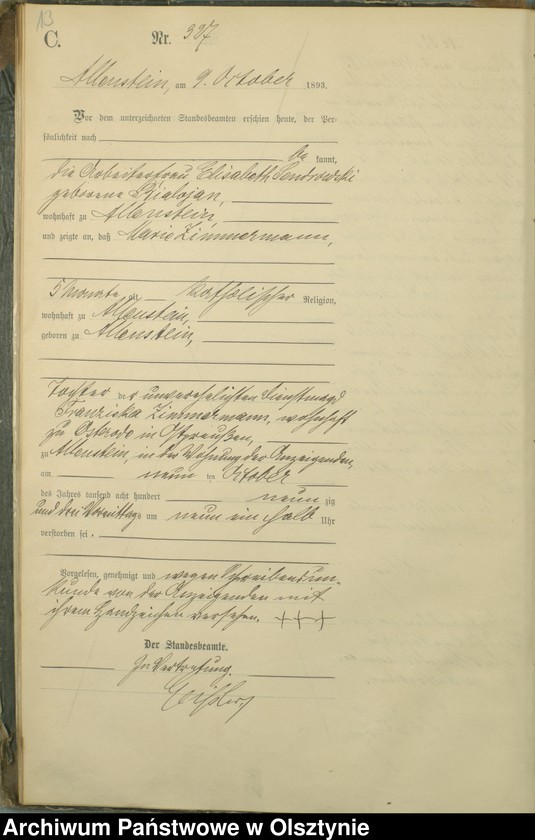 13
C.
Nr. 327
Allenstein, am 9. October 1893.
Vor dem unterzeichneten Standesbeamten erschien heute, der Per-
sönlichkeit nach
be kannt,
die Arbeiterfrau Elisabeth Sendrowski
geborene Bialojan,
wohnhaft zu Allenstein,
und zeigte an, daß Marie Zimmermann,
5 Monate alt katholischer Religion,
wohnhaft zu Allenstein,
geboren zu Allenstein,
Tochter der unverehelichten Dienstmagd
Franziska Zimmermann, wohnhaft
zu Osterode in Ostpreußen,
zu Allenstein, in der Wohnung der Anzeigenden,
am neun ten October
des Jahres tausend acht hundert neun zig
und drei Vormittags um neun ein halb Uhr
verstorben sei.
Vorgelesen, genehmigt und wegen Schreibensun-
kunde von der Anzeigenden mit
ihrem Handzeichen versehen. +++
Der Standesbeamte.
In Vertretung.
Archiwum Państwowe w Olsztynie